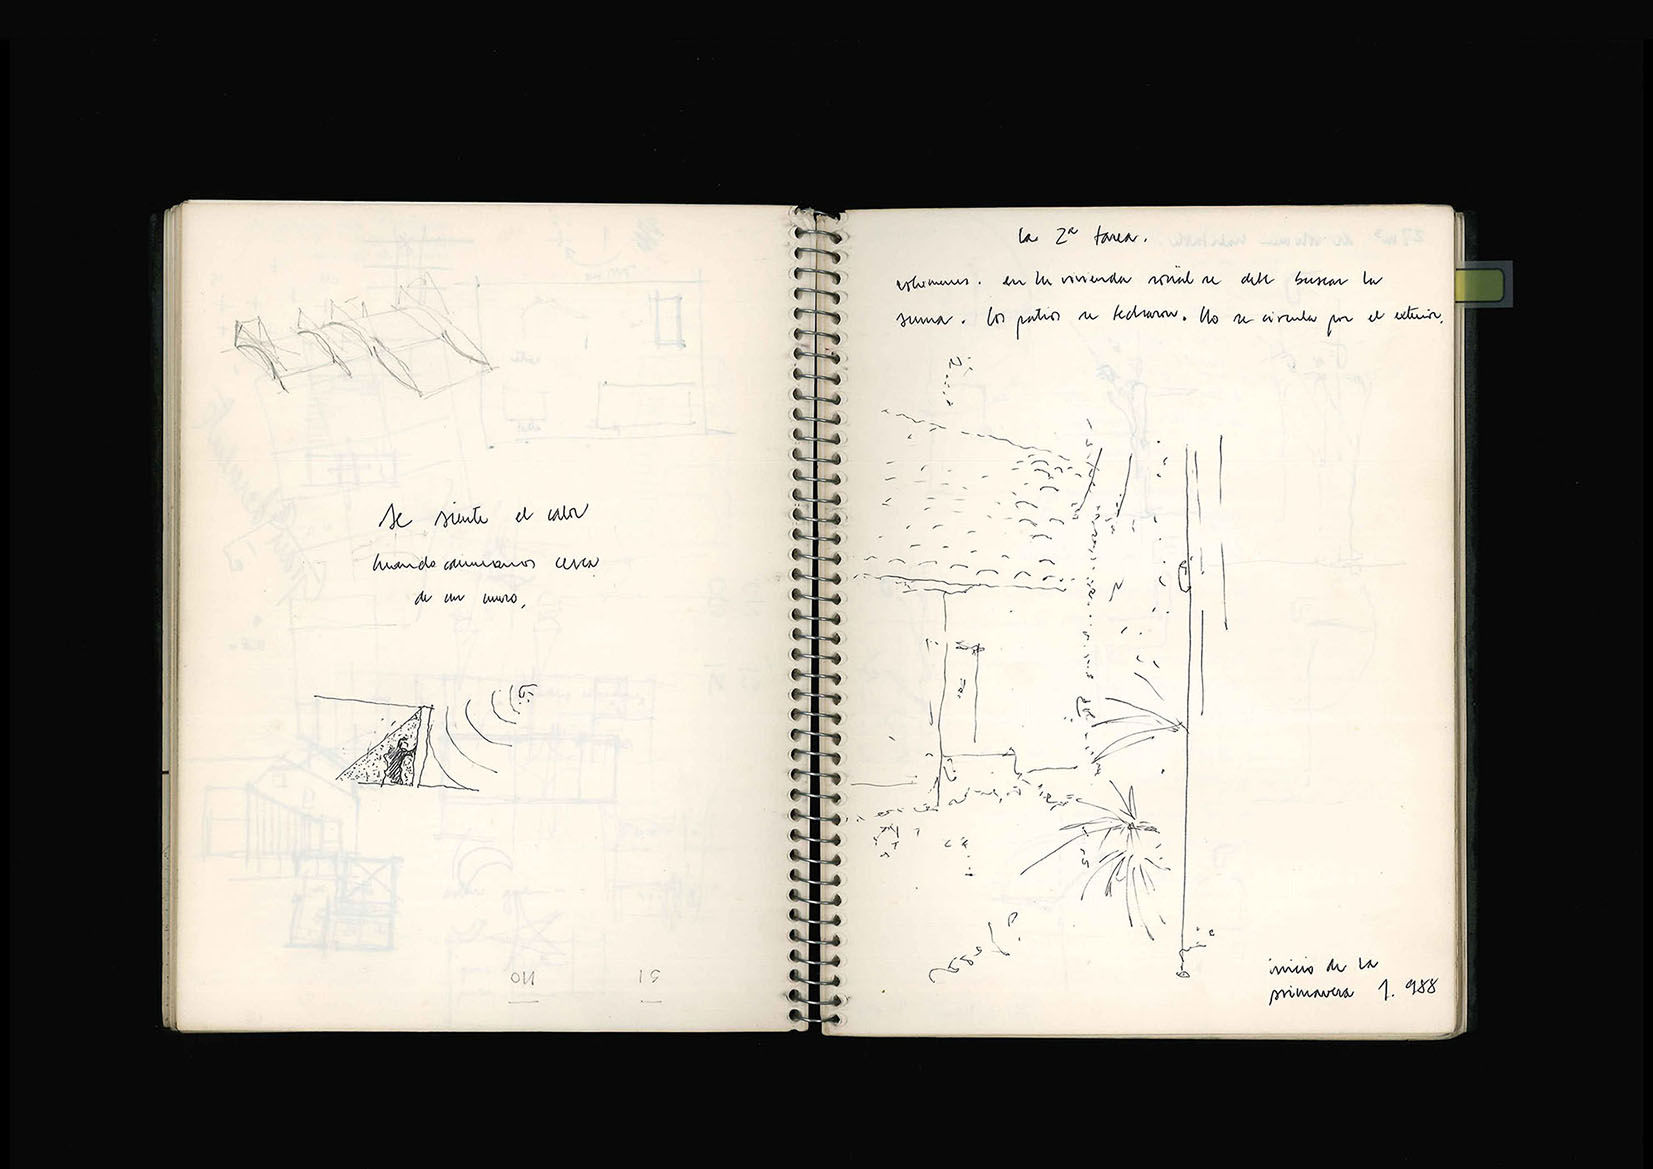 Se siente el calor
cuando caminamos cerca
de un muro.
la 2ª tarea.
volumenes. en la vivienda social se debe buscar la
suma. los patios se techaron. No se circula por el exterior.
inicio de la
primavera 1.988